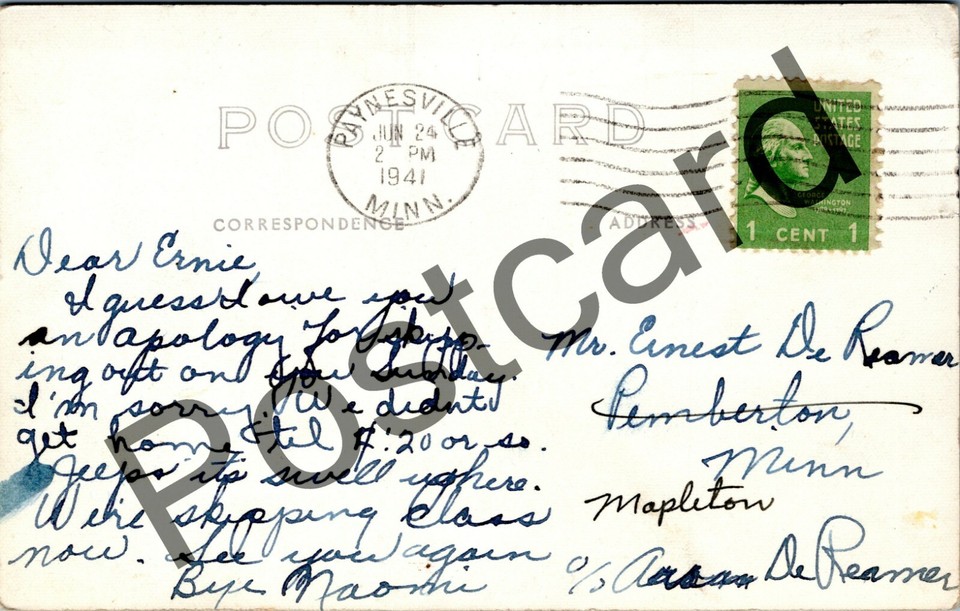 POST CARD
PAYNESVILLE
JUN 24
2 PM
1941
MINN.
UNITED
STATES
POSTAGE
GEORGE
WASHINGTON
1 CENT 1
CORRESPONDENCE
ADDRESS
Dear Ernie,
I guess I owe you
an apology for skipp-
ing out on you Sunday.
I'm sorry. We didnt
get home til 4:20 or so.
Jeeps its swell up here.
We're skipping class
now. See you again
Bye Naomi
Mr. Ernest De Reamer
Pemberton,
Minn
Mapleton
c/o De Reamer
Postcard